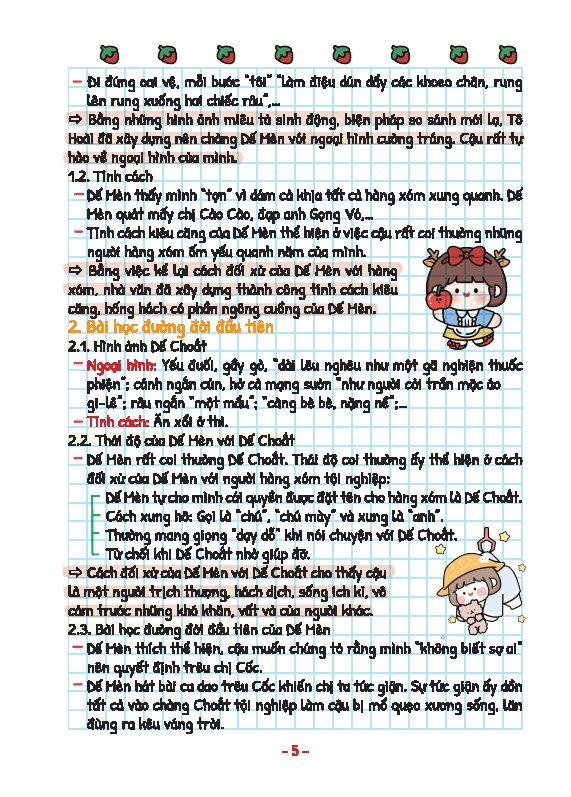 – Đi đứng oai vệ, mỗi bước “tôi” “làm điệu dún dẩy các khoeo chân, rung
lên rung xuống hai chiếc râu”,...
⇨ Bằng những hình ảnh miêu tả sinh động, biện pháp so sánh mới lạ, Tô
Hoài đã xây dựng nên chàng Dế Mèn với ngoại hình cường tráng. Cậu rất tự
hào về ngoại hình của mình.
1.2. Tính cách
– Dế Mèn thấy mình “tợn” vì dám cà khịa tất cả hàng xóm xung quanh. Dế
Mèn quát mấy chị Cào Cào, đạp anh Gọng Vó,...
– Tính cách kiêu căng của Dế Mèn thể hiện ở việc cậu rất coi thường những
người hàng xóm ốm yếu quanh năm của mình.
⇨ Bằng việc kể lại cách đối xử của Dế Mèn với hàng
xóm, nhà văn đã xây dựng thành công tính cách kiêu
căng, hống hách có phần ngông cuồng của Dế Mèn.
2. Bài học đường đời đầu tiên
2.1. Hình ảnh Dế Choắt
– Ngoại hình: Yếu đuối, gầy gò, “dài lêu nghêu như một gã nghiện thuốc
phiện”; cánh ngắn củn, hở cả mạng sườn “như người cởi trần mặc áo
gi-lê”; râu ngắn “một mẩu”; “càng bè bè, nặng nề”;...
– Tính cách: Ăn xổi ở thì.
2.2. Thái độ của Dế Mèn với Dế Choắt
– Dế Mèn rất coi thường Dế Choắt. Thái độ coi thường ấy thể hiện ở cách
đối xử của Dế Mèn với người hàng xóm tội nghiệp:
Dế Mèn tự cho mình cái quyền được đặt tên cho hàng xóm là Dế Choắt.
Cách xưng hô: Gọi là “chú”, “chú mày” và xưng là “anh”.
Thường mang giọng “dạy dỗ” khi nói chuyện với Dế Choắt.
Từ chối khi Dế Choắt nhờ giúp đỡ.
⇨ Cách đối xử của Dế Mèn với Dế Choắt cho thấy cậu
là một người trịch thượng, hách dịch, sống ích kỉ, vô
cảm trước những khó khăn, vất vả của người khác.
2.3. Bài học đường đời đầu tiên của Dế Mèn
– Dế Mèn thích thể hiện, cậu muốn chứng tỏ rằng mình “không biết sợ ai”
nên quyết định trêu chị Cốc.
– Dế Mèn hát bài ca dao trêu Cốc khiến chị ta tức giận. Sự tức giận ấy dồn
tất cả vào chàng Choắt tội nghiệp làm cậu bị mổ quẹo xương sống, lăn
đùng ra kêu váng trời.
– 5 –